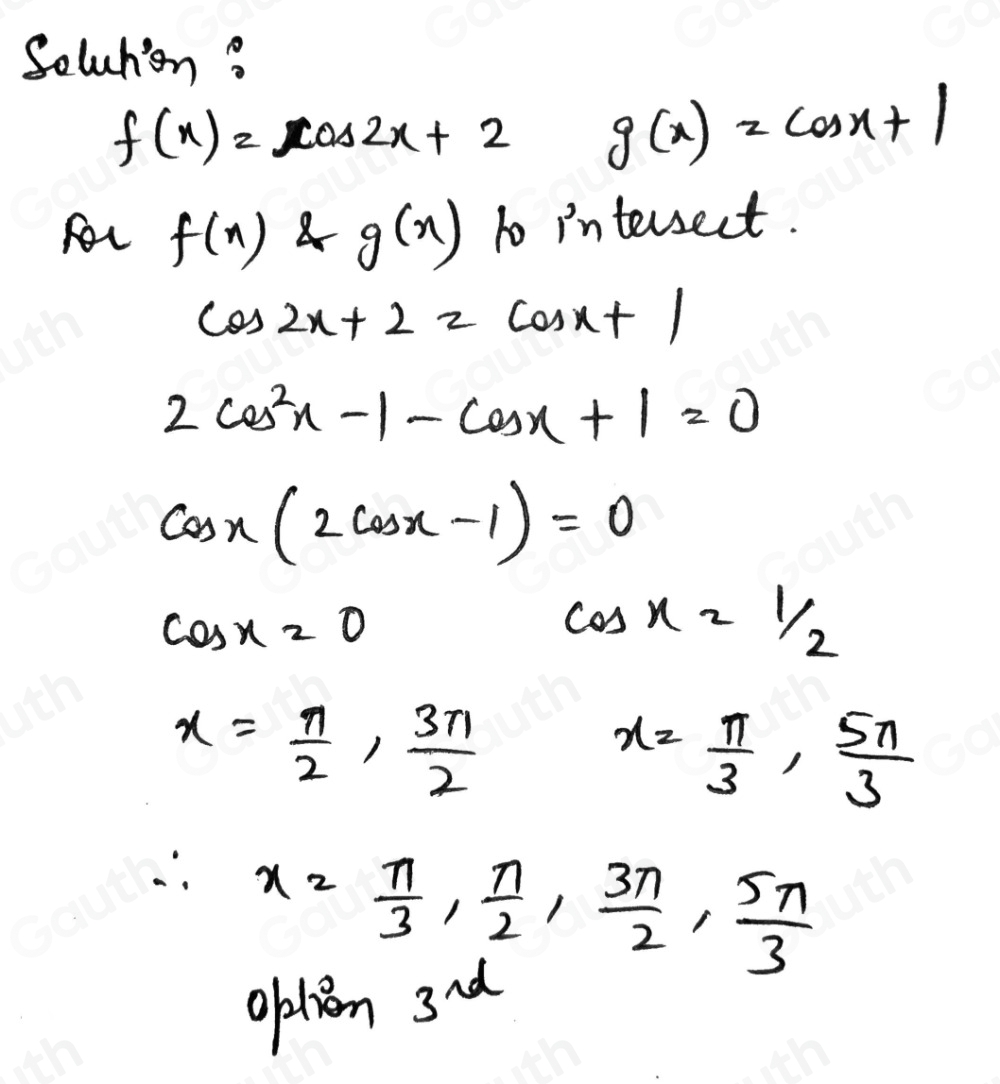 Solution :
f(x) = cos2x + 2 g(x) = cosx + 1
For f(x) & g(x) to intersect.
cos 2x + 2 = cosx + 1
2 cos²x - 1 - cosx + 1 = 0
cosx ( 2 cosx - 1 ) = 0
cosx = 0 cos x = 1/2
x = π/2 , 3π/2 x = π/3 , 5π/3
∴ x = π/3 , π/2 , 3π/2 , 5π/3
option 3rd